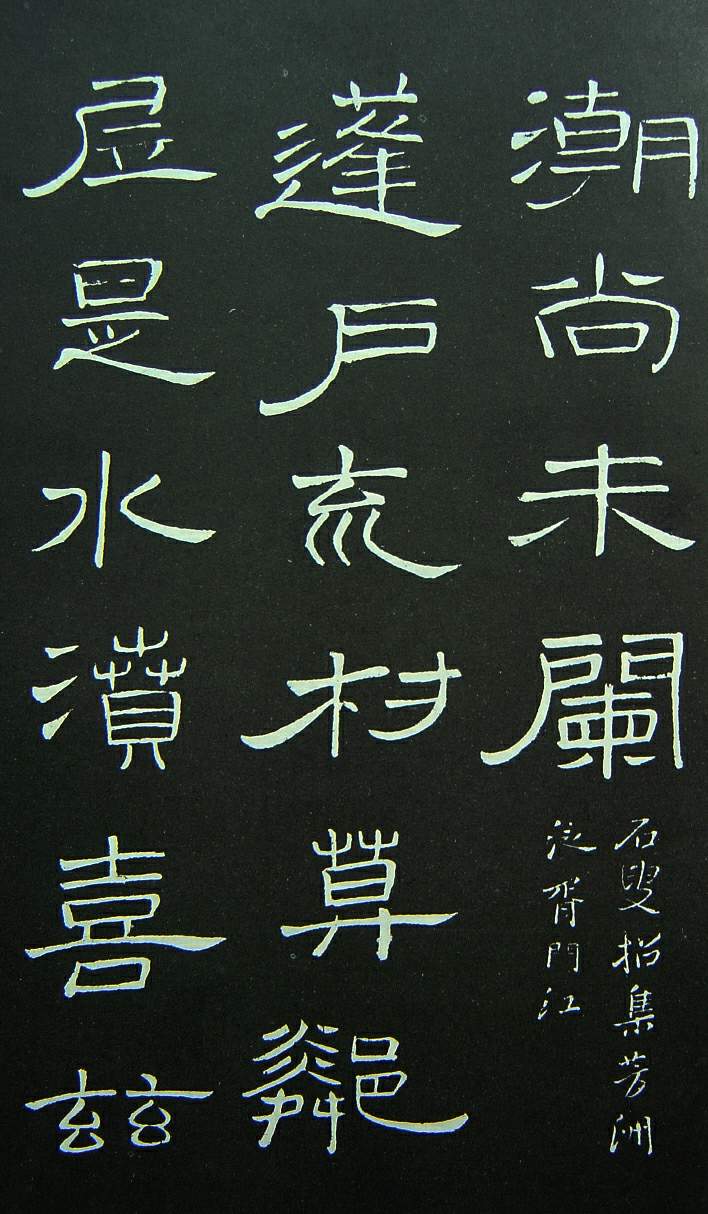 潮尚未闌
石叟招集芳洲
泛胥門江
蓬戶巟村莫鄰
是水濆喜茲